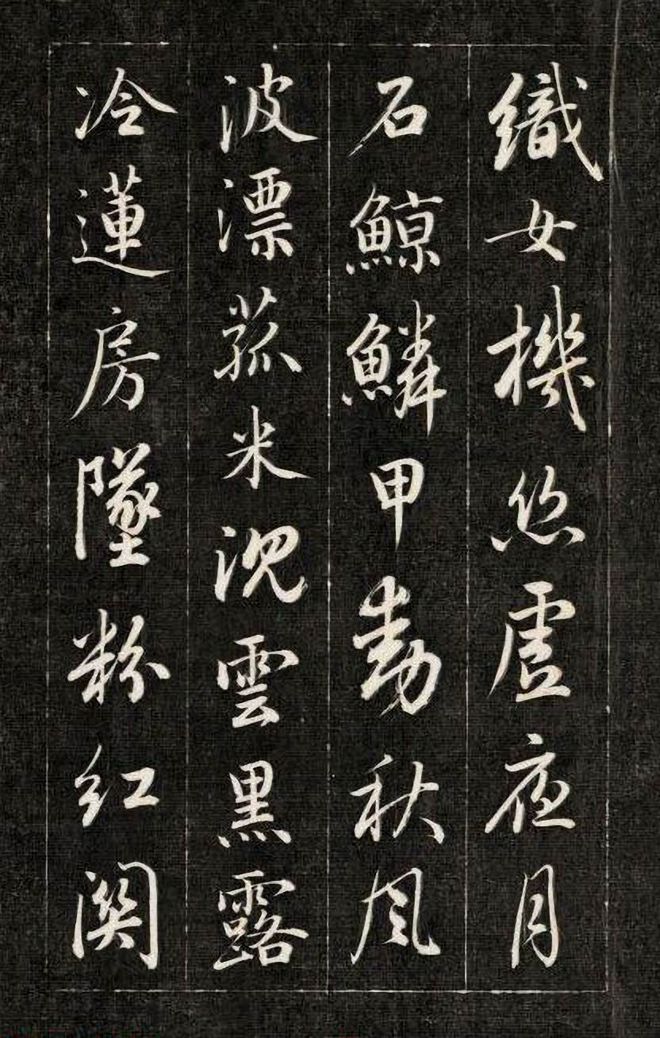 織女機丝虛夜月
石鯨鱗甲動秋風
波漂菰米沈雲黑露
冷蓮房墜粉紅関